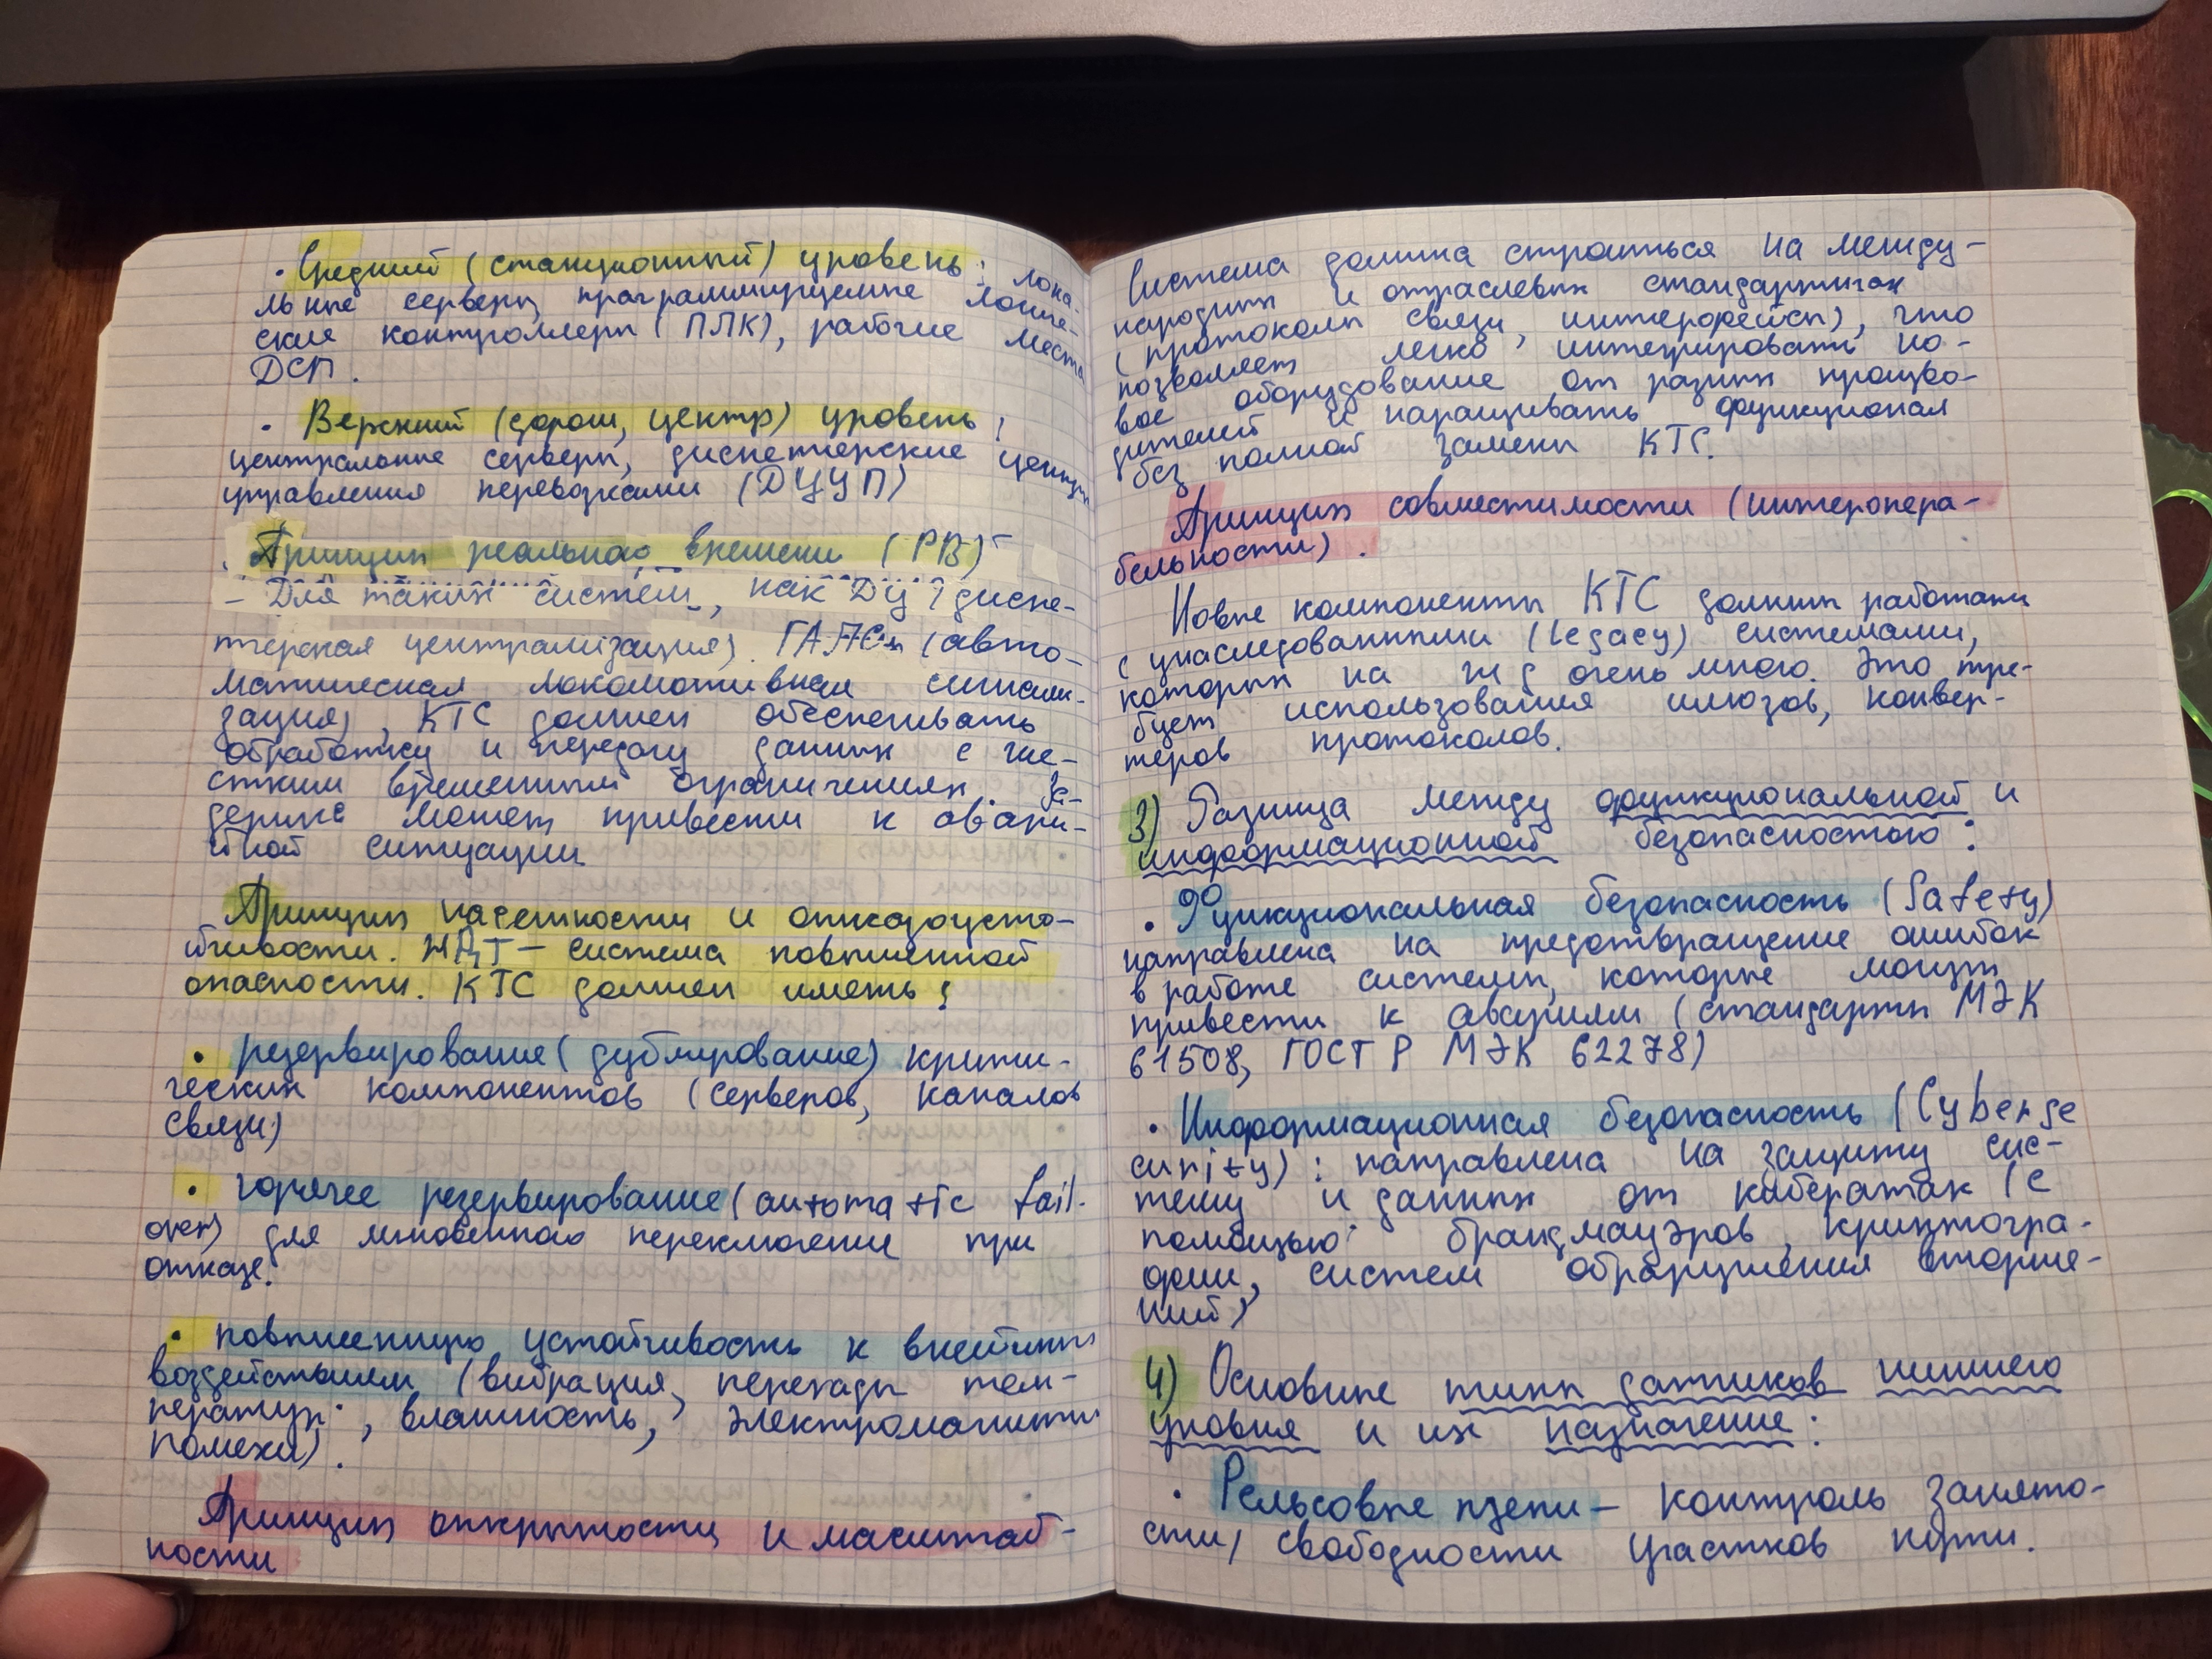 · Средний (станционный) уровень: лока-
льные серверы, программируемые логиче-
ские контроллеры (ПЛК), рабочие места
ДСП.
· Верхний (дорож, центр) уровень:
центральные серверы, диспетчерские центры
управления перевозками (ДЦУП)
Принцип реального времени (РВ) -
- Для таких систем, как ДЦ (диспе-
тчерская централизация). (авто-
матическая локомотивная сигнали-
зация), КТС должен обеспечивать
обработку и передачу данных с же-
сткими временными ограничениями. За-
держка может привести к авари-
йной ситуации.
Принцип надежности и отказоусто-
йчивости. ЖДТ - система повышенной
опасности. КТС должен иметь:
· резервирование (дублирование) крити-
ческих компонентов (серверов, каналов
связи)
· горячее резервирование (automatic fail-
over) для мгновенного переключение при
отказе.
· повышенную устойчивость к внешним
воздействиям (вибрация, перепады тем-
ператур, влажность, электромагнитны
помехи).
Принцип открытости и масштаб-
ности
Система должна строиться на между-
народных и отраслевых стандартах
(протоколы связи, интерфейсы), что
позволяет легко интегрировать но-
вое оборудование от разных произво-
дителей и наращивать функционал
без полной замены КТС.
Принцип совместимости (интеропера-
бельности).
Новые компоненты КТС должны работать
с унаследованными (legacy) системами,
которых на ж д очень много. Это тре-
бует использования шлюзов, конвер-
теров протоколов.
3) Разница между функциональной и
информационной безопасностью:
· Функциональная безопасность (Safety)
направлена на предотвращение ошибок
в работе системы, которые могут
привести к авариям (стандарты МЭК
61508, ГОСТ Р МЭК 62278)
· Информационная безопасность (Cyberse
curity): направлена на защиту сис-
тему и данных от кибератак (с
помощью брандмауэров, криптогра-
фии, систем обнаружения вторже-
ний)
4) Основные типы датчиков нижнего
уровня и их назначение:
· Рельсовые цепи - контроль занято-
сти/свободности участков пути.